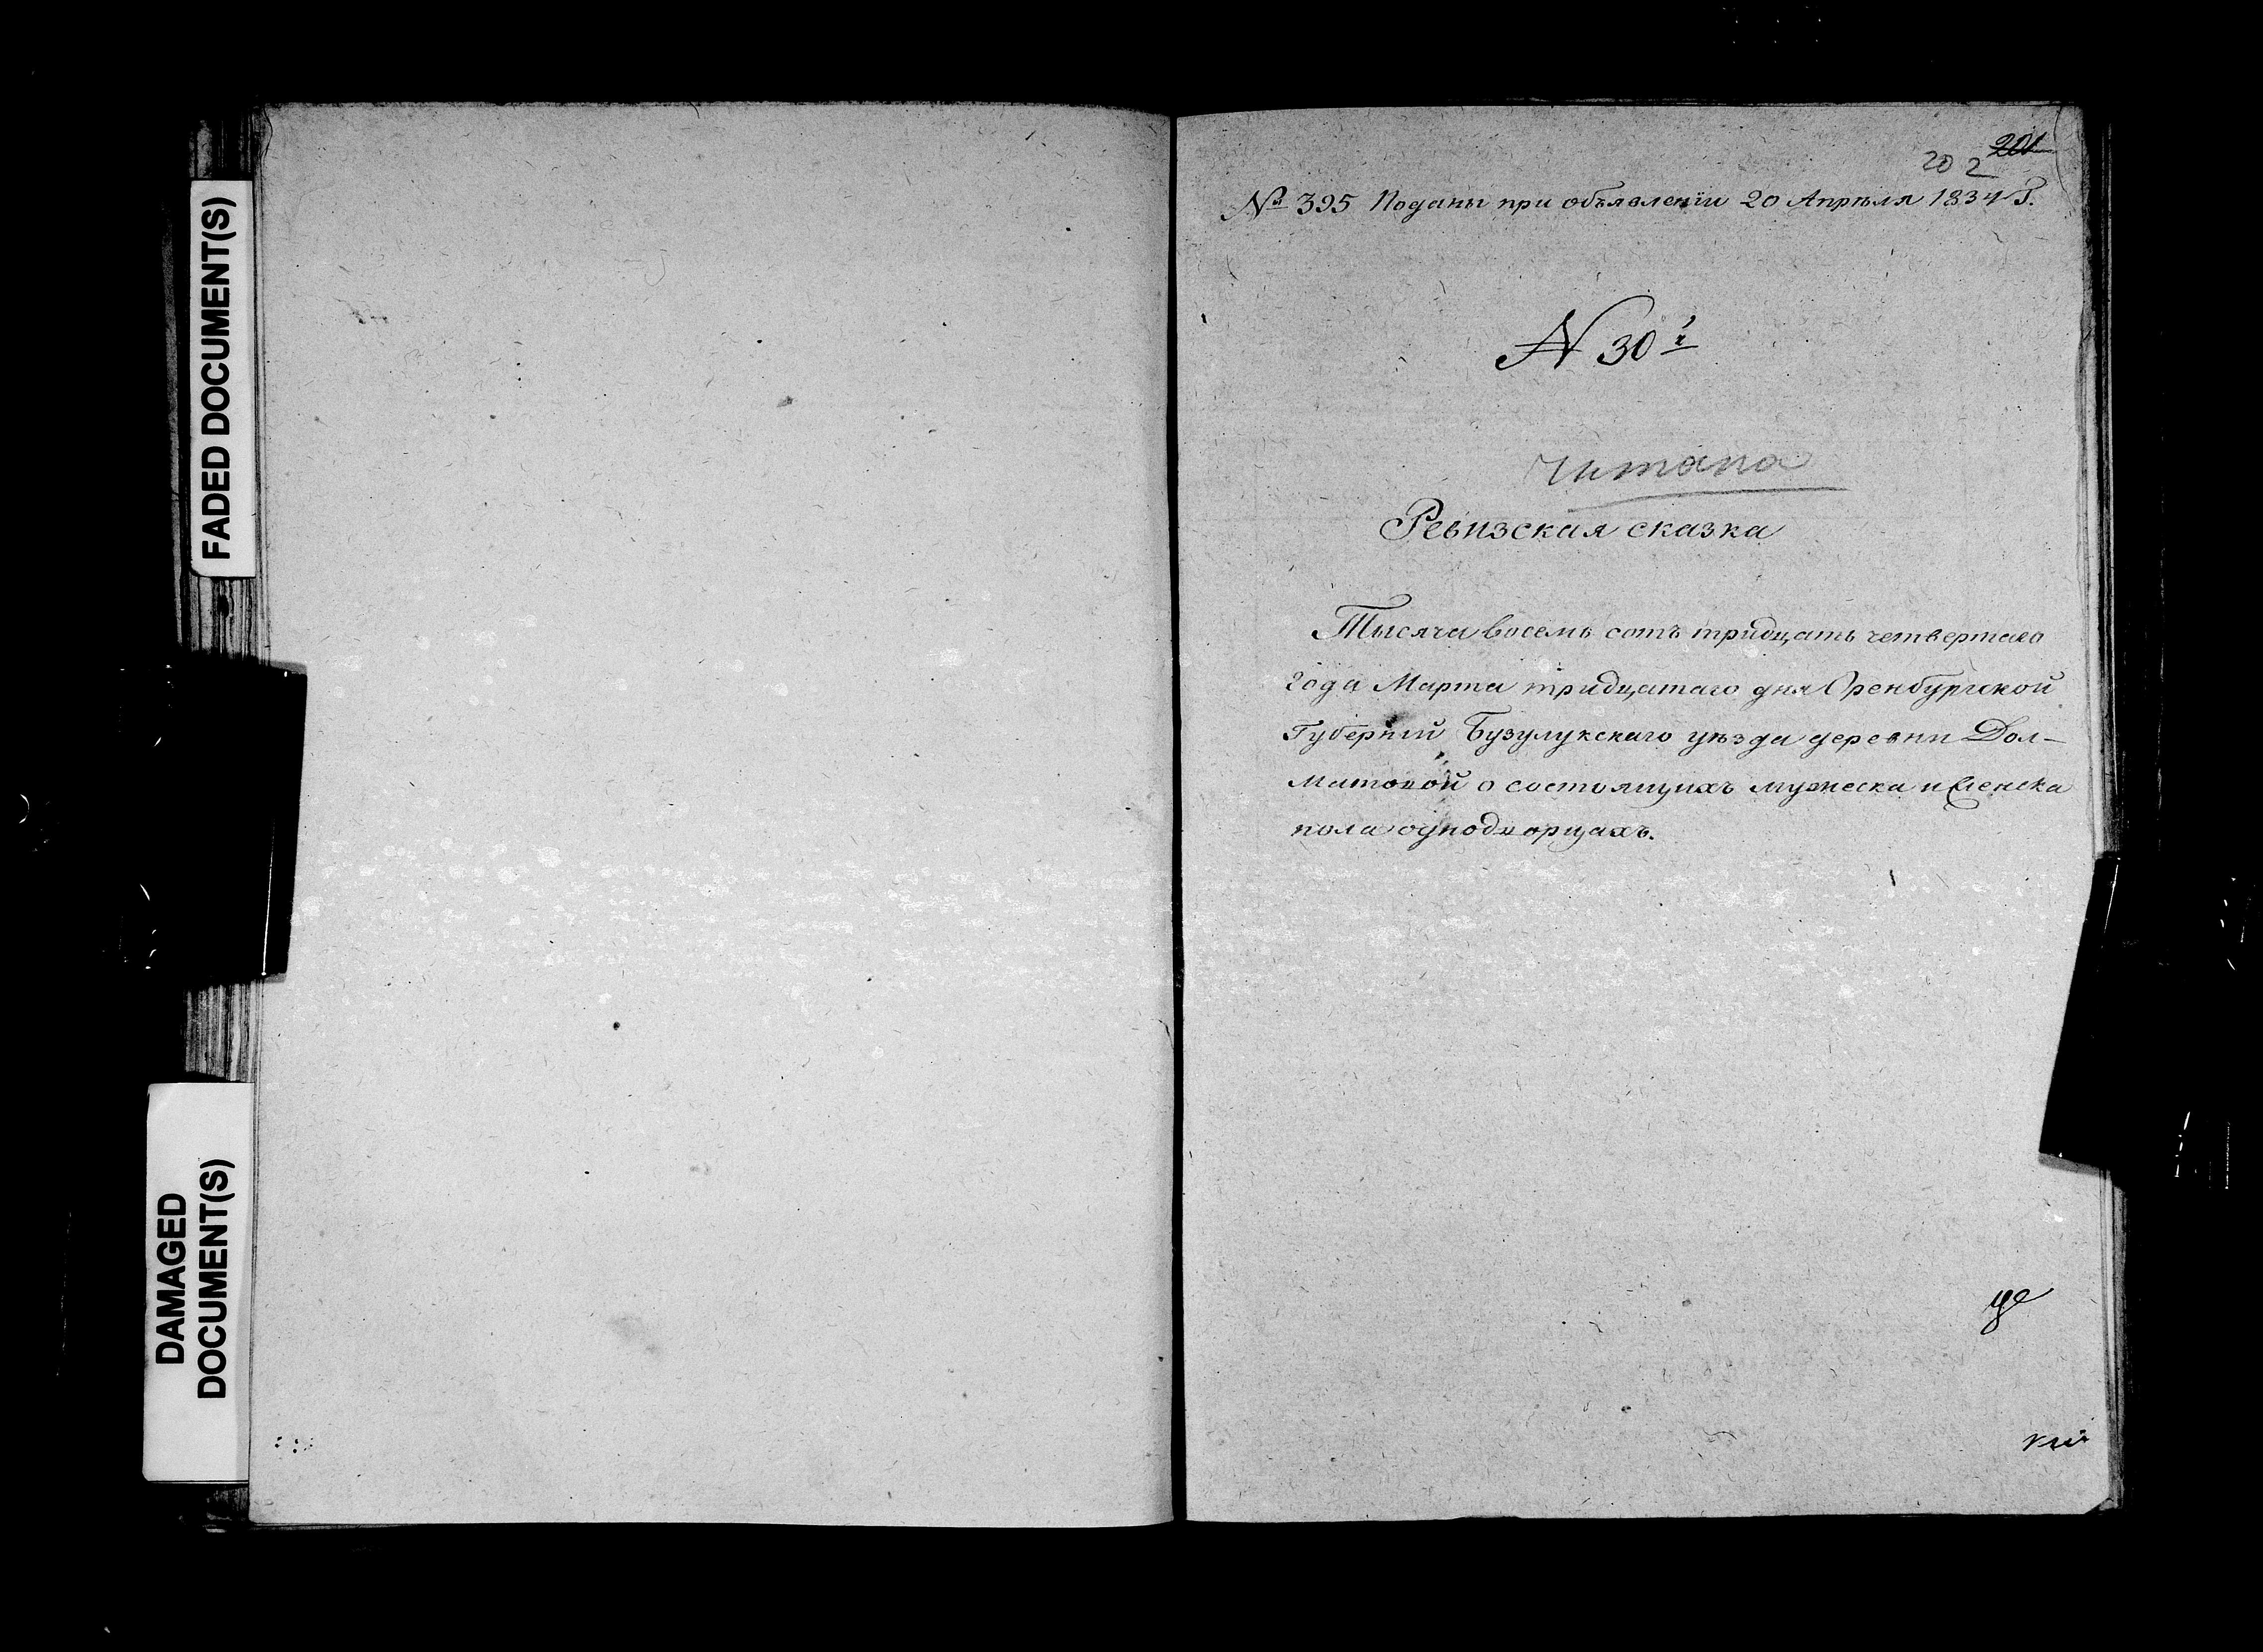 FADED DOCUMENT(S)
DAMAGED
DOCUMENT(S)
201
202
№ 395 Поданы при объявленіи 20 Апрѣля 1834 Г.
N 30й
читана
Ревизская сказка
Тысяча восемь сотъ тридцать четвертаго
года Марта тридцатаго дня Оренбургской
Губерніи Бузулукскаго уѣзда деревни Дол-
матовой о состоящихъ мужеска и женска
пола однодворцахъ.